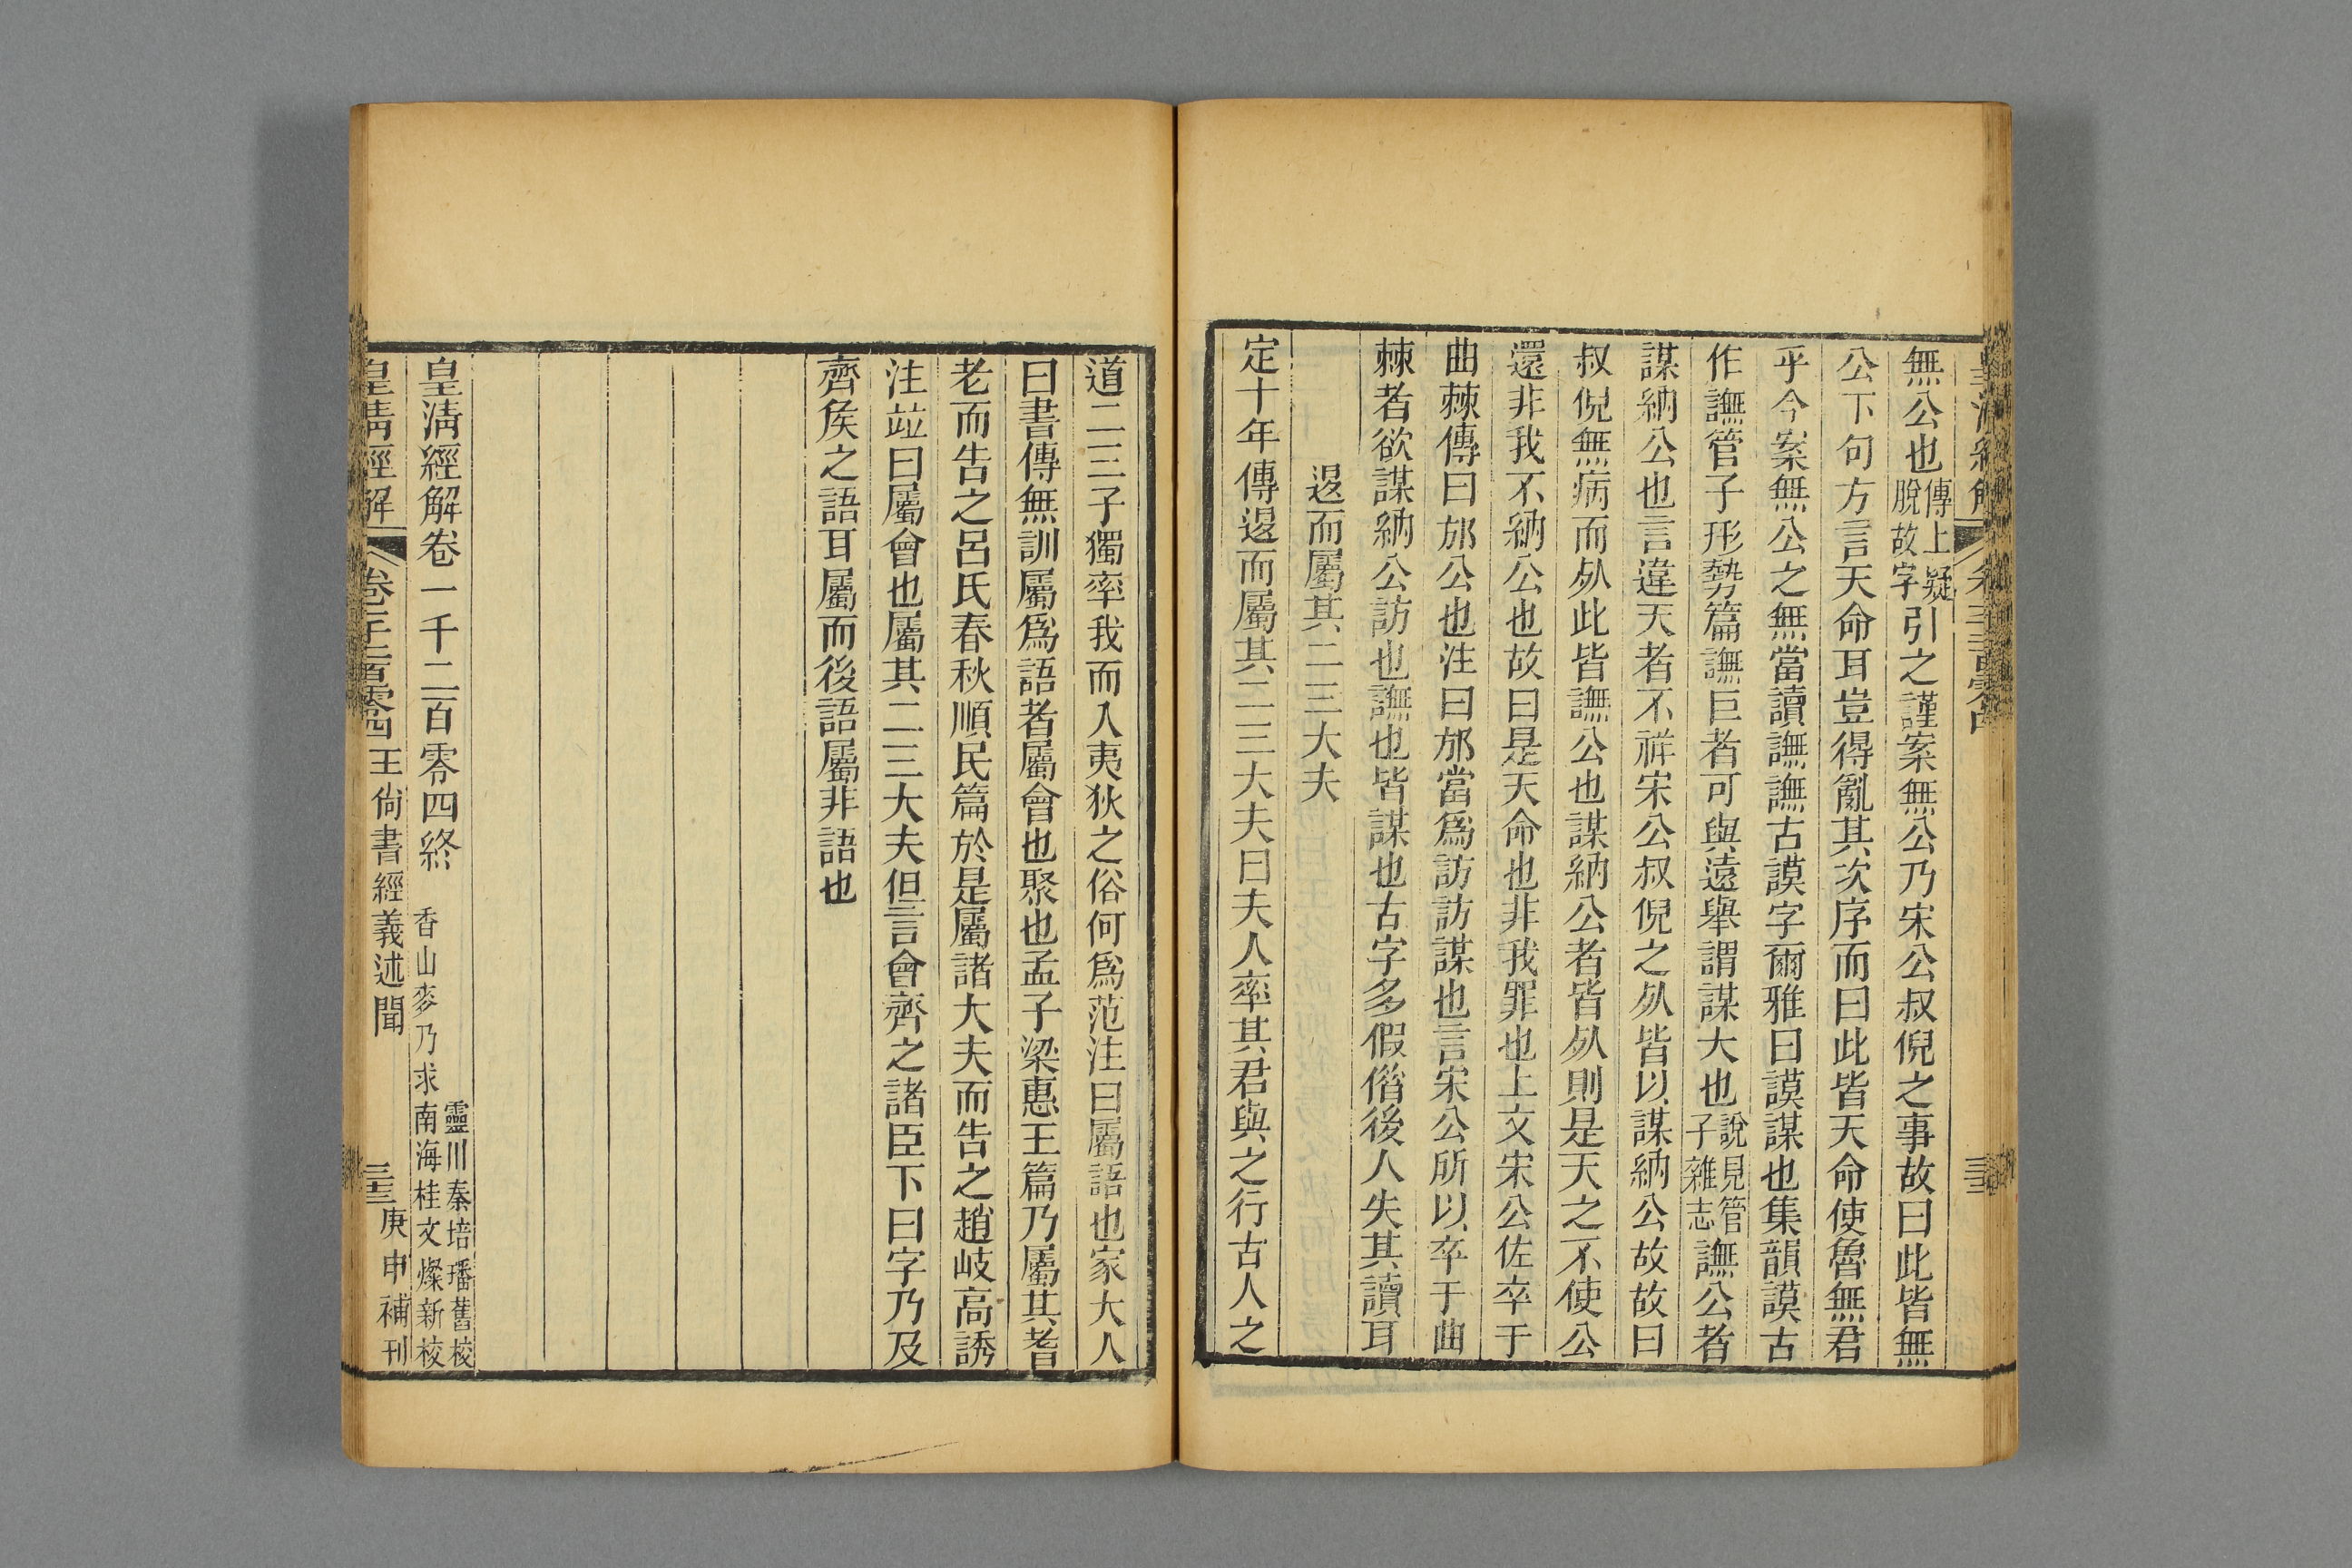 無公也傳上疑脫故字引之謹案無公乃宋公叔倪之事故曰此皆無
公下句方言天命耳豈得亂其次序而曰此皆天命使魯無君
乎今案無公之無當讀譕譕古謨字爾雅曰謨謀也集韻謨古
作譕管子形勢篇譕巨者可與遠舉謂謀大也說見管子雜志譕公者
謀納公也言違天者不祥宋公叔倪之㱙皆以謀納公故故曰
叔倪無病而㱙此皆譕公也謀納公者皆㱙則是天之不使公
還非我不納公也故曰是天命也非我罪也上文宋公佐卒于
曲棘傳曰邡公也注曰邡當爲訪訪謀也言宋公所以卒于曲
棘者欲謀納公訪也譕也皆謀也古字多假偺後人失其讀耳
逻而屬其二三大夫
定十年傳逻而屬其二三大夫曰夫人率其君與之行古人之
道二三子獨率我而入夷狄之俗何爲范注曰屬語也家大人
曰書傳無訓屬爲語者屬會也聚也孟子梁惠王篇乃屬其耆
老而告之呂氏春秋順民篇於是屬諸大夫而告之趙岐高誘
注竝曰屬會也屬其二三大夫但言會齊之諸臣下曰字乃及
齊矦之語耳屬而後語屬非語也
皇淸經解卷一千二百零四終
香山麥乃求
靈川秦培璠舊校
南海桂文燦新校
皇淸經解
卷一千二百零四
王尙書經義述聞
庚申補刊